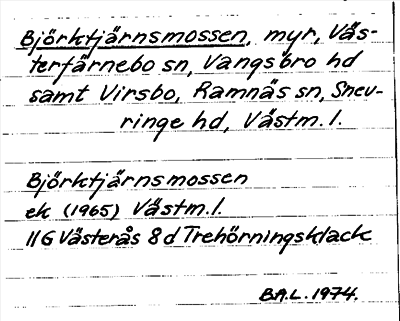 Björktjärnsmossen, myr, Väs-
terfärnebo sn, Vangsbro hd
samt Virsbo, Ramnäs sn, Snev-
ringe hd, Västm. l.
Björktjärnsmossen
ek (1965) Västm. l.
11G Västerås 8d Trehörningsklack
B.A.L. 1974.